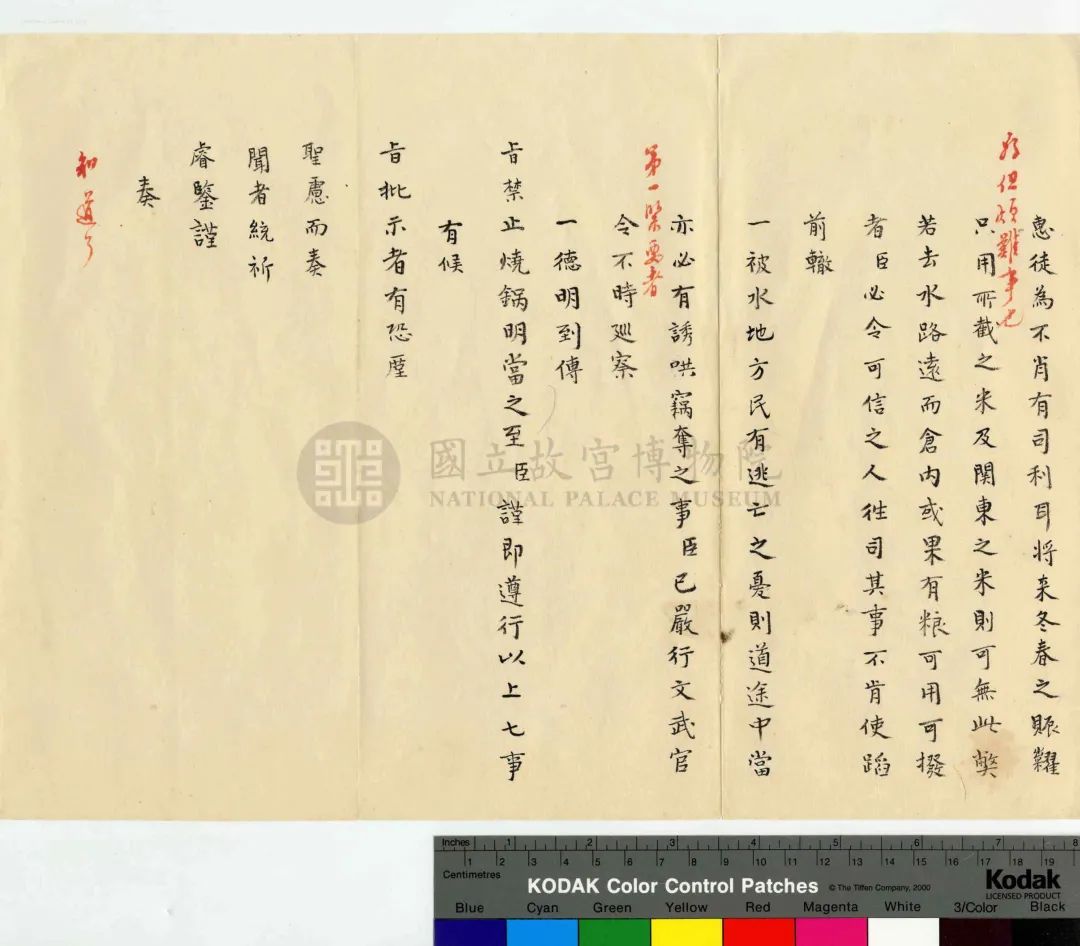 惠徒為不肖有司利耳將来冬春之賑糶
但頗難事也
只用所截之米及関東之米則可無此獘
若去水路遠而倉内或果有粮可用可撥
者臣必令可信之人徃司其事不肯使蹈
前轍
一被水地方民有逃亡之憂則道途中當
亦必有誘哄竊奪之事臣已嚴行文武官
第一緊要者
令不時廵察
一德明到傳
旨禁止燒鍋明當之至臣謹即遵行以上七事
有候
旨批示者有恐廑
聖慮而奏
聞者統祈
睿鑒謹
奏
知道了
國立故宮博物院
NATIONAL PALACE MUSEUM
Inches 1 2 3 4 5 6 7 8
1 2 3 4 5 6 7 8 9 10 11 12 13 14 15 16 17 18 19
Centimetres
KODAK Color Control Patches © The Tiffen Company, 2000
Kodak
LICENSED PRODUCT
Blue Cyan Green Yellow Red Magenta White 3/Color Black